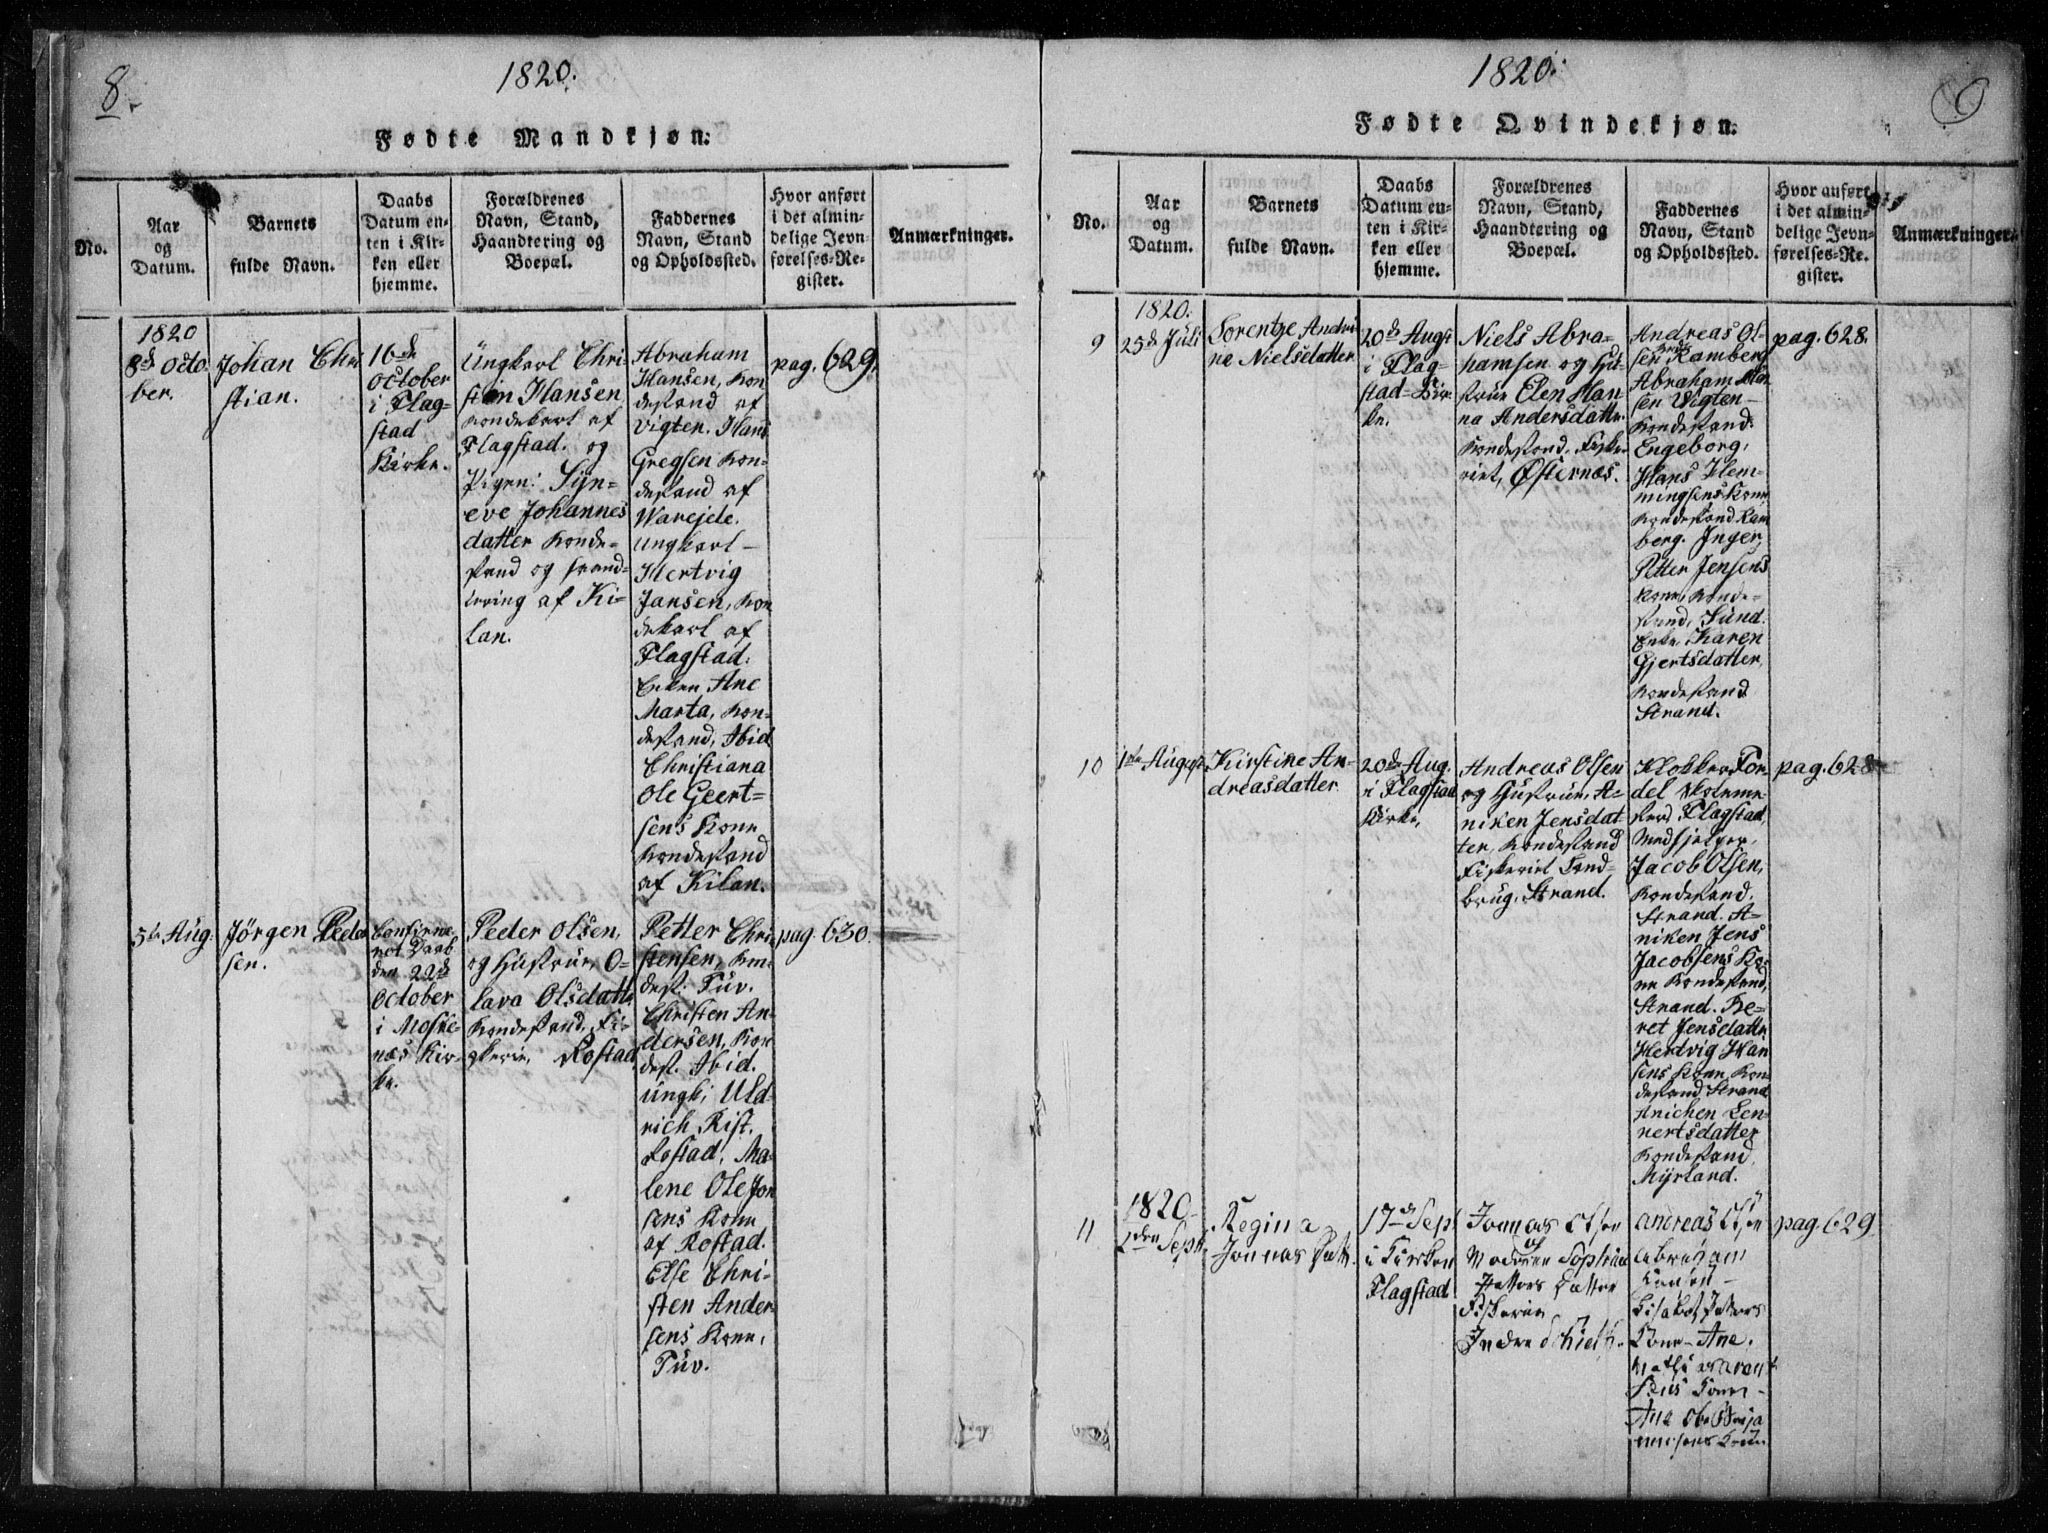 8.
1820.
Fødte Mandkjøn:
No.
Aar
og
Datum.
Barnets
fulde Navn.
Daabs
Datum en-
ten i Kir-
ken eller
hjemme.
Forældrenes
Navn, Stand,
Haandtering og
Boepæl.
Faddernes
Navn, Stand
og Opholdssted.
Hvor anført
i det almin-
delige Jevn-
førelses-Re-
gister.
Anmærkninger.
1820
8de Octo-
ber.
Johan Chri
stian.
16de
October
i Flag-
stad
Kirke.
Ungkarl Chri
stian Hansen
Kondekarl af
Flagstad. og
Pigen: Syn-
eve Johannes
datter Konde-
stand og
af Ki-
lan.
Abraham
Hansen, Kon
destand af
Vigten. Hans
Gregsen Kon-
destand af
Warejde.
Ungkarl
Hertvig
Jansen, Kon
dekarl af
Flagstad.
Enken Ane
Marta, Kon-
destand, Ibid
Christiana
Ole Geert-
sens Kone
Kondestand
af Kilan.
pag. 629.
5te Aug.
Jörgen Peder
sen.
Confirme-
ret Daab
den 22de
October
i Moske-
næs Kir-
ke.
Peder Olsen,
og Hustrue, O-
lava Olsdatter
Kondestand, Fi-
skerie, Rostad
Petter Chri-
stensen, Kon-
dest. Tuv.
Christen An-
dersen, Kon
dest. Ibid.
Ungk: Uld-
rich Rist.
Rostad, Ma-
lene Ole Jon
sens Kone
af Rostad.
Else Chri-
sten Ander
sens Kone,
Tuv.
pag. 630.
1820.
Fødte Qvindekjøn:
No.
Aar
og
Datum.
Barnets
fulde Navn.
Daabs
Datum en-
ten i Kir-
ken eller
hjemme.
Forældrenes
Navn, Stand,
Haandtering og
Boepæl.
Faddernes
Navn, Stand
og Opholdssted.
Hvor anført
i det almin-
delige Jevn-
førelses-Re-
gister.
Anmærkninger.
9
1820.
25de Juli
Lorentze Andri
ne Nielsdatter
20de Augst
i Flag-
stad Kir-
ke.
Niels Abra-
hamsen og Hu-
strue Elen Han
na Andersdatter
Kondestand, Fiske
riet, Østernæs.
Andreas Ol-
sen Ramberg
Abraham Han
sen Vigten
Kondestand.
Engeborg,
Hans Hem-
mingsens Kone
Kondestand Ram
berg. Inger
Petter Jensens
Kone, Konde-
stand, Sund.
Enke Karen
Gjertsdatter,
Kondestand
Strand.
pag. 628.
10
1ste August
Kirstine An-
dreasdatter
20de Aug.
i Flagstad
Kirke,
Andreas Olsen
og Hustrue, A-
niken Jensdat
ter, Kondestand
Fiskeriet Jord-
brug, Strand.
Klokker Tor-
del Skoleme-
ster, Flagstad,
Medhjelper,
Jacob Olsen,
Kondestand.
Strand. A-
niken Jens
Jacobsens Ko-
ne Kondestand,
Strand. Be-
ret Jensdatter
Hertvig Han
sens Kone, Kon-
destand Strand
Anichen Len-
nertsdatter
Kondestand,
Myrland.
pag. 628
11
1820
den Septr.
Regina
Jonnas Datt.
17de Sept
i Kirken
Flagstad
Jonnas Olsen
og
Moderen Sophia
Petters Datter
Fiskerie
Indre
Andreas Olsen
Abraham
Hansen
Elisabet Petters
Kone - Ane.
Kone -
Ane Ole
pag. 629